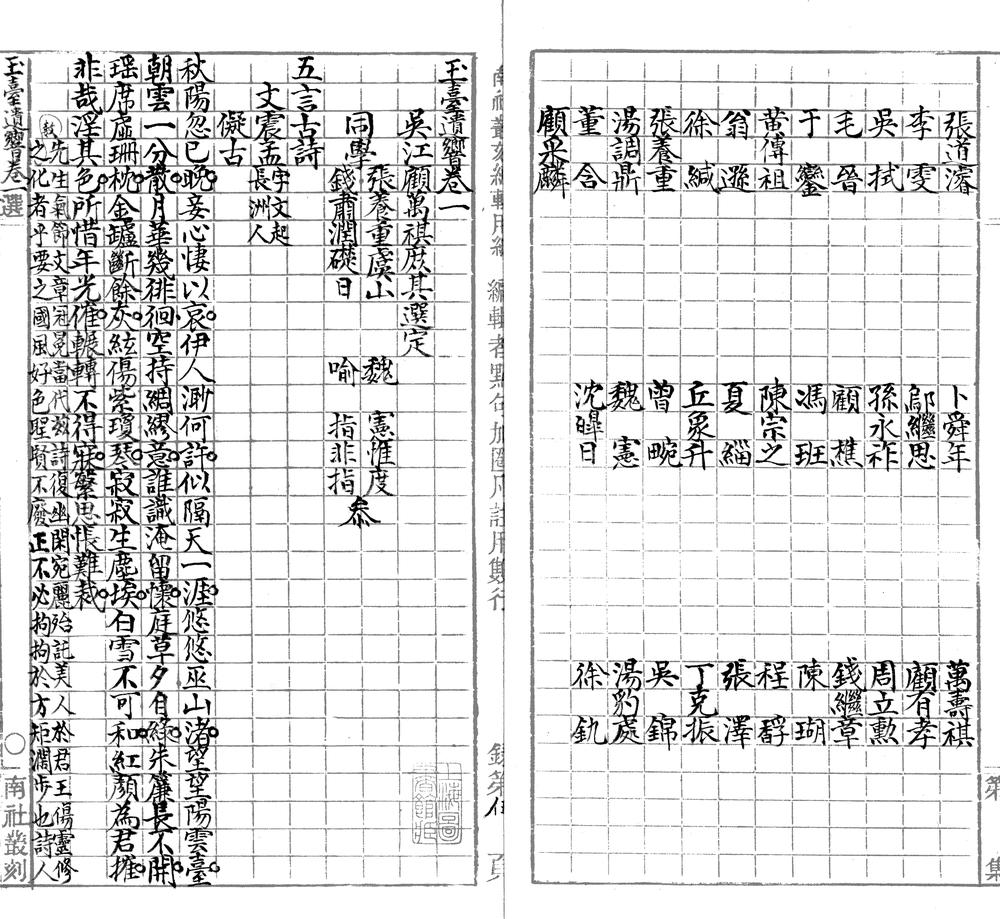 張道濬 卜舜年 萬壽祺
李雯 鄔繼思 顧有孝
吳拭 孫永祚 周立勲
毛晉 顧樵 錢繼章
于鑾 馮班 陳瑚
黄傅祖 陳宗之 程馞
翁遜 夏緇 張澤
徐緘 丘象升 丁克振
張養重 曾畹 吳錦
湯調鼎 魏憲 湯豹處
董含 沈皥日 徐釚
顧采麟
玉臺遺響卷一
吳江顧萬祺庶其選定
張養重虞山 魏憲惟度
同學 叅
錢肅潤礎日 喻指非指
五言古詩
文震孟字文起長洲人
儗古
秋陽忽已晚妾心悽以哀伊人渺何許似隔天一涯悠悠巫山渚望望陽雲臺
朝雲一分散月華幾徘徊空持綢繆意誰識淹留懷庭草夕自綠朱簾長不開
瑶席虛珊枕金罏斷餘灰絃傷紫瓊琴寂寂生塵埃白雪不可和紅顏為君摧
非哉淫其色所惜年光催輾轉不得寐縈思悵難裁
先生氣節文章冠冕當代玆詩復幽閑宛麗殆託美人於君王傷靈修
之化者乎要之國風好色聖賢不廢正不必拘拘於方矩濶步也詩人
玉臺遺響卷一
選
南社叢刻